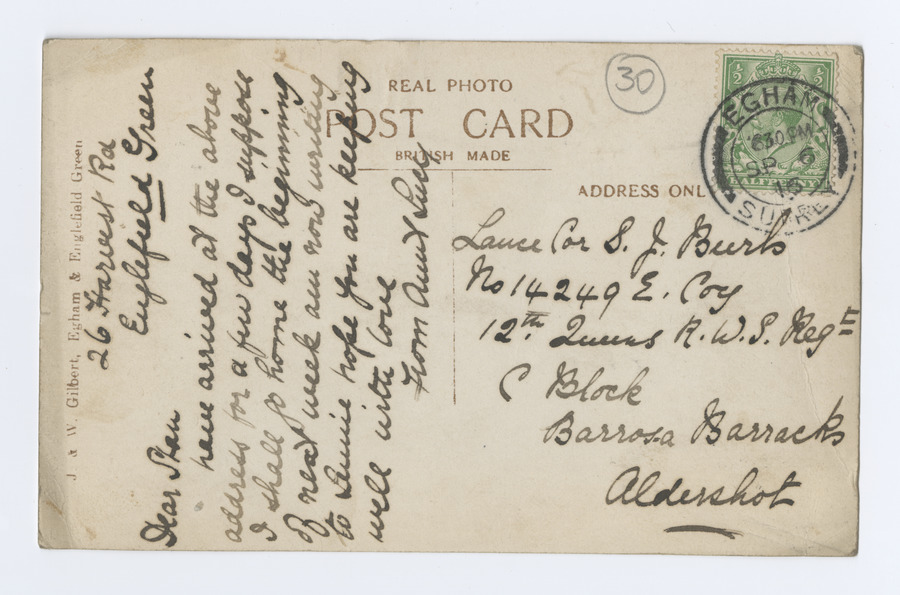 REAL PHOTO
POST CARD
BRITISH MADE
ADDRESS ONL
30
½ ½
EGHAM
6 30 PM
SP 6
16
SURREY
J & W. Gilbert, Egham & Englefield Green
26 Harvest Rd
Englefield Green
Dear Stan
have arrived at the above
address for a few days I suppose
I shall go home the beginning
of next week am now writing
to Lennie hope you are keeping
well with love
from Aunt
Lance Cor S. J. Burls
No 14249 E. Coy
12th Queens R.W.S. Regt
C Block
Barrosa Barracks
Aldershot